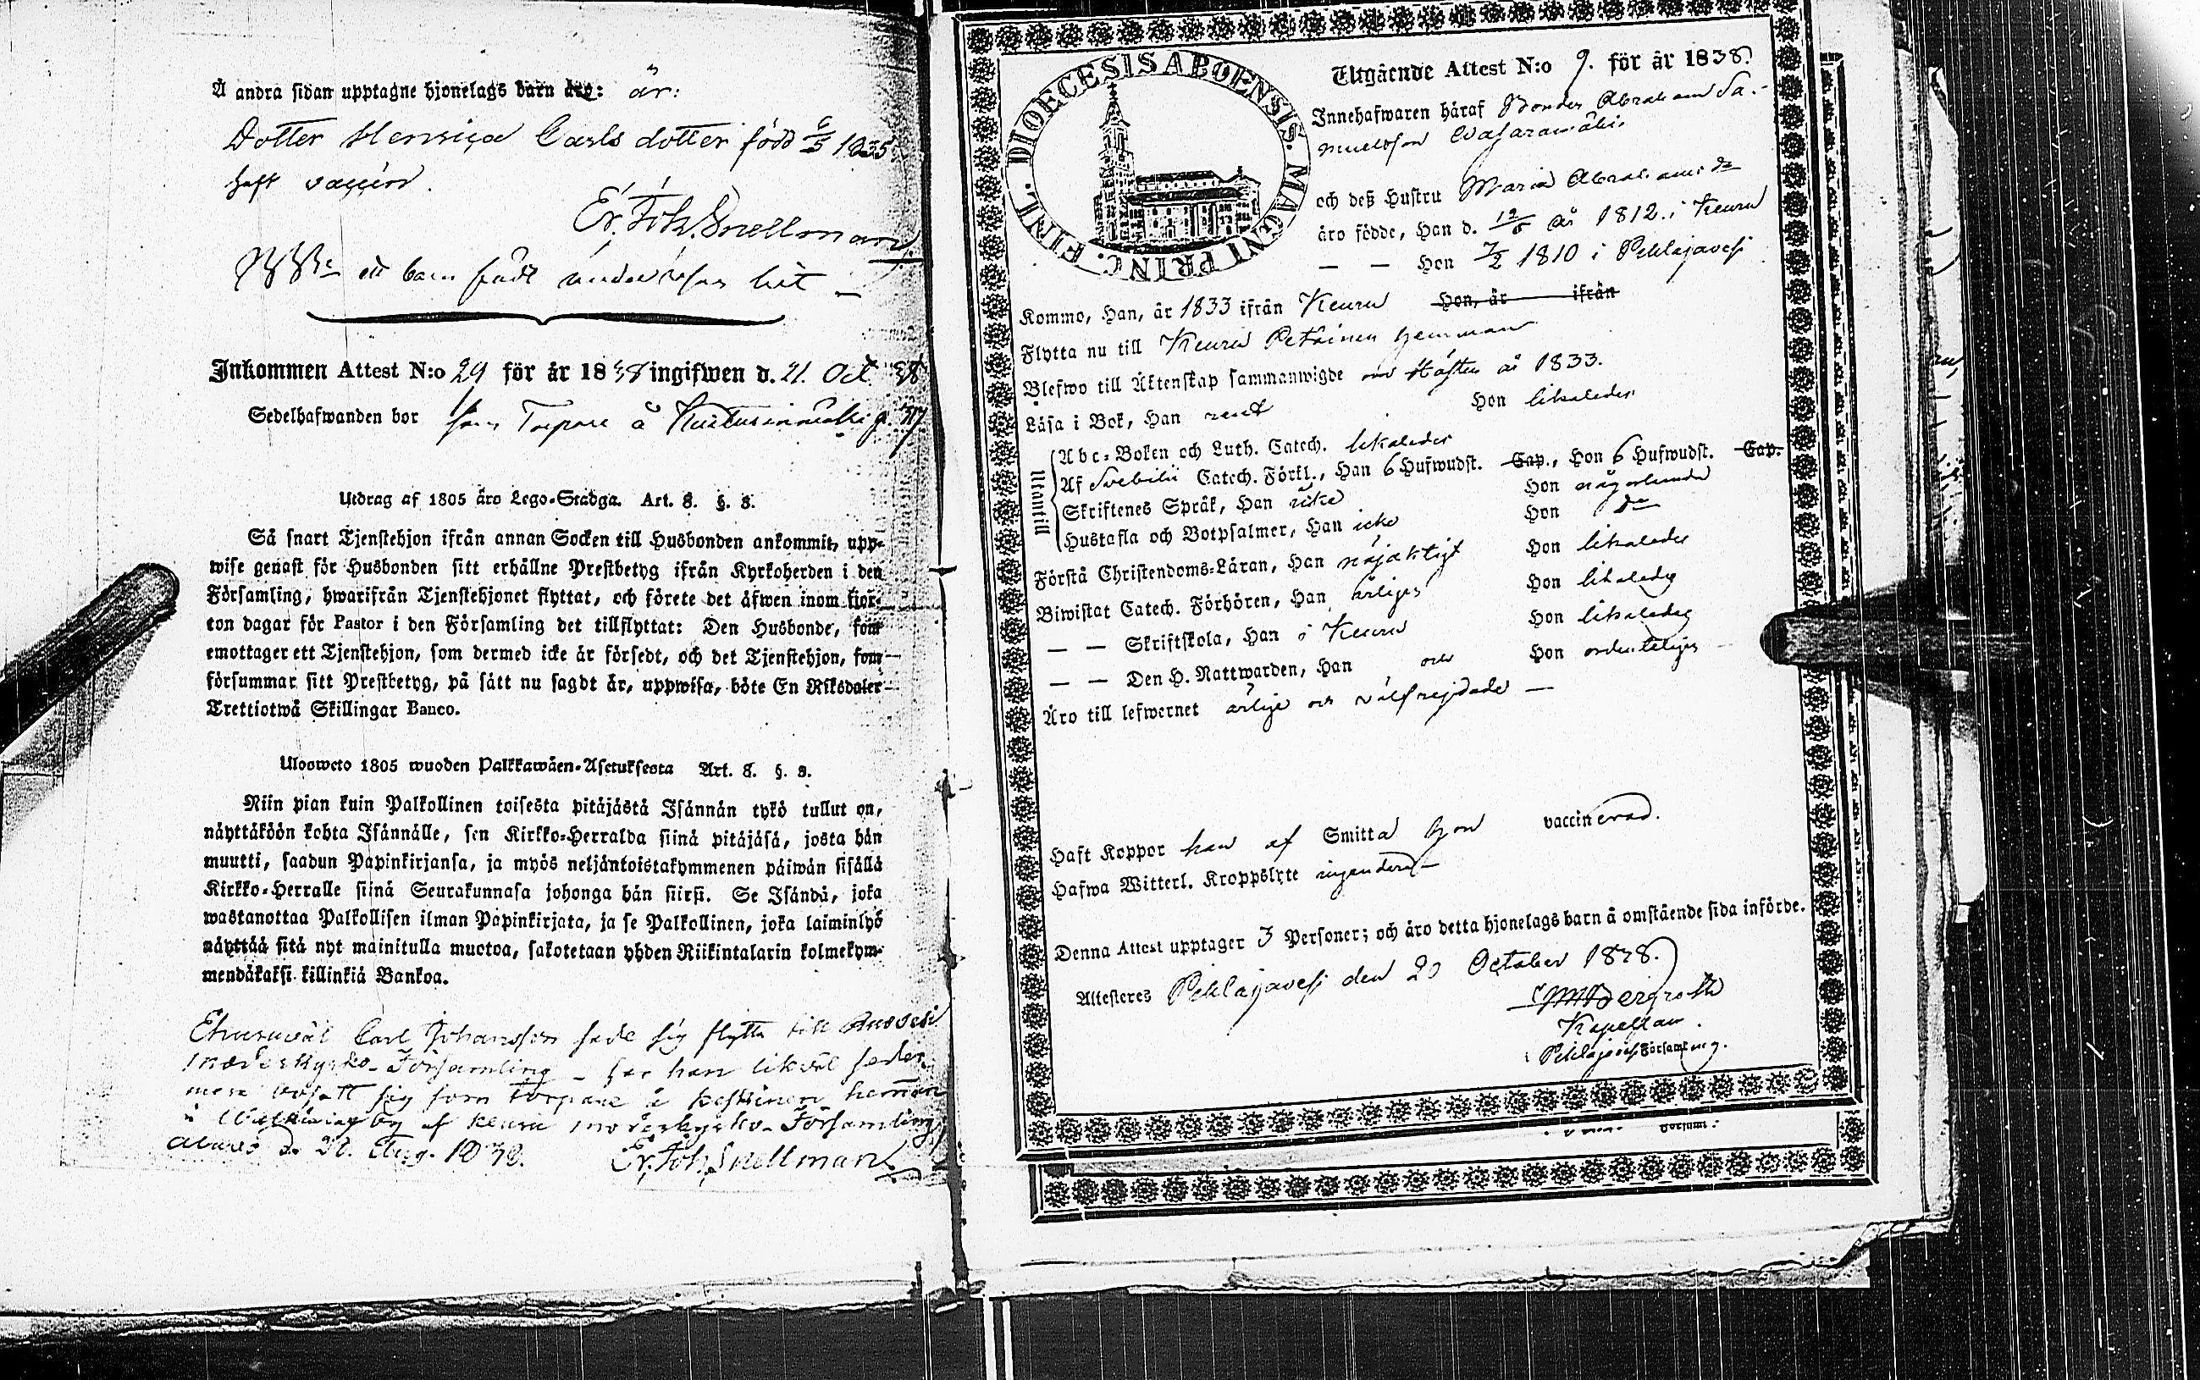 Å andra sidan upptagne hjonelags barn äro: är:
Dotter Henrica Carls dotter född 6/5 1835
haft vaccin.
Er. Joh. Snellman
ett barn födt
Inkommen Attest N:o 29 för år 1838 ingifwen d. 21. Oct. 38
Sedelhafwanden bor som Torpare å
Utdrag af 1805 års Lego-Stadga. Art. 8. §. 3.
Så snart Tjenstehjon ifrån annan Socken till Husbonden ankommit, upp-
wise genast för Husbonden sitt erhållne Prestbetyg ifrån Kyrkoherden i den
Församling, hwarifrån Tjenstehjonet flyttat, och förete det äfwen inom fjor-
ton dagar för Pastor i den Församling det tillflyttat: Den Husbonde, som
emottager ett Tjenstehjon, som dermed icke är försedt, och det Tjenstehjon, som
försummar sitt Prestbetyg, på sätt nu sagdt är, uppwisa, böte En Riksdaler
Trettiotwå Skillingar Banco.
Ulosweto 1805 wuoden Palkkawäen-Asetuksesta Art. 8. §. 3.
Niin pian kuin Palkollinen toisesta pitäjästä Isännän tykö tullut on,
näyttäköön kohta Isännälle, sen Kirkko-Herralda siinä pitäjäsä, josta hän
muutti, saadun Papinkirjansa, ja myös neljäntoistakymmenen päiwän sisällä
Kirkko-Herralle siinä Seurakunnasa johonga hän siirsi. Se Isändä, joka
wastanottaa Palkollisen ilman Papinkirjata, ja se Palkollinen, joka laiminlyö
näyttää sitä nyt mainitulla muotoa, sakotetaan yhden Riikintalarin kolmekym-
mendäkaksi killinkiä Bankoa.
Ehuruväl Carl Johansson sade sig flytta till
moderkyrko-Församling - har han likväl seder
mera bosatt sig som torpare å hemman
i by af Keuru moderkyrko-Församling
d. 28. Aug. 1838. Er. Joh. Snellman
DIOECESIS ABOENSIS. MAGNI PRINC. FINL.
Utgående Attest N:o 9. för år 1838.
Innehafwaren häraf Bonden Abraham Sa-
muelsson Wasaramäki
och deß Hustru Maria Abrahamsdr
äro födde, Han d. 12/6 år 1812 i Keuru
— — Hon 7/2 1810 i Pihlajavesi
Kommo, Han, år 1833 ifrån Keuru Hon, år ifrån
Flytta nu till Keuru hemman
Blefwo till Äktenskap sammanwigde om Hösten år 1833.
Läsa i Bok, Han rent Hon likaledes
Utantill
Abc-Boken och Luth. Catech. likaledes
Af Svebilii Catech. Förkl., Han 6 Hufwudst. Cap., Hon 6 Hufwudst. Cap.
Skriftenes Språk, Han icke Hon någorlunda
Hustafla och Botpsalmer, Han icke Hon do
Förstå Christendoms-Läran, Han nöjaktigt Hon likaledes
Biwistat Catech. Förhören, Han årligen Hon likaledes
— — Skriftskola, Han i Keuru Hon likaledes
— — Den H. Nattwarden, Han och Hon ordenteligen
Äro till lefwernet ärlige och välfrejdade —
Haft Koppor han af Smitta hon vaccinerad.
Hafwa Witterl. Kroppslyte ingendera —
Denna Attest upptager 3 Personer; och äro detta hjonelags barn å omstående sida införde.
Attesteres Pihlajavesi den 20 October 1838.
Bergroth
Kapellan
i Pihlajavesi Församling.